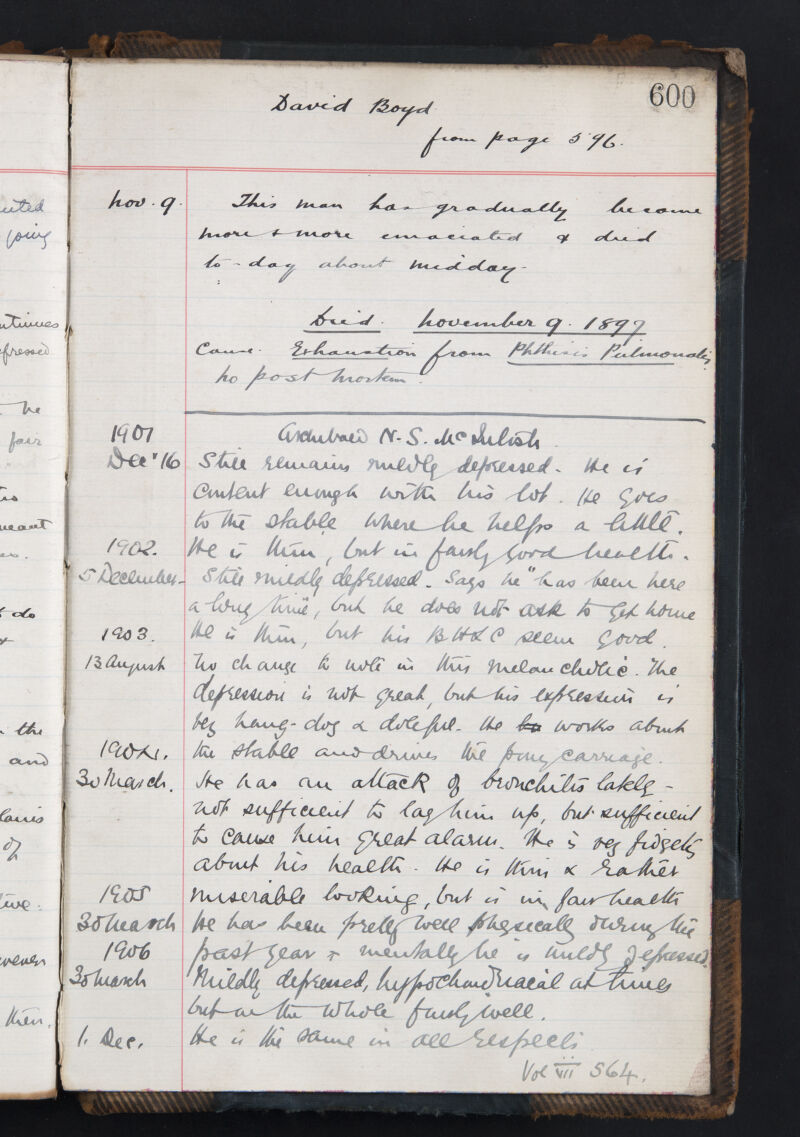 600
David Boyd
from page 596.
Nov. 9. This man has gradually become
more & more emaciated & died
to-day about midday.
Died. November 9. 1899
Cause. Exhaustion from Phthisis Pulmonalis
No post mortem.
1901 Archibald N. S. McIntosh
Dec 16 Still remains mildly depressed. He is
content enough with his lot. He goes
to the stable where he helps a little.
1902. He is thin, but in fairly good health.
5 December. Still mildly depressed. Says he "has been here
a long time", but he does not ask to get home
1903. He is thin, but his B H & C seem good.
13 August No change to note in this melancholic. The
depression is not great, but his expression is
very hang-dog & doleful. He works about
1904. the stable and drives the pony carriage.
30 March. He has an attack of bronchitis lately -
not sufficient to lay him up, but sufficient
to cause him great alarm. He is very fidgety
about his health. He is thin & rather
1905 miserable looking, but is in fair health
30 March He has been pretty well physically during the
1906 past year & mentally he is mildly depressed.
30 March Mildly depressed, hypochondriacal at times
but on the whole fairly well.
1. Dec. He is the same in all respects.
Vol VII 564.
uted
going
ntinues
epressed
he
fair
meant
do
the
and
of
then.